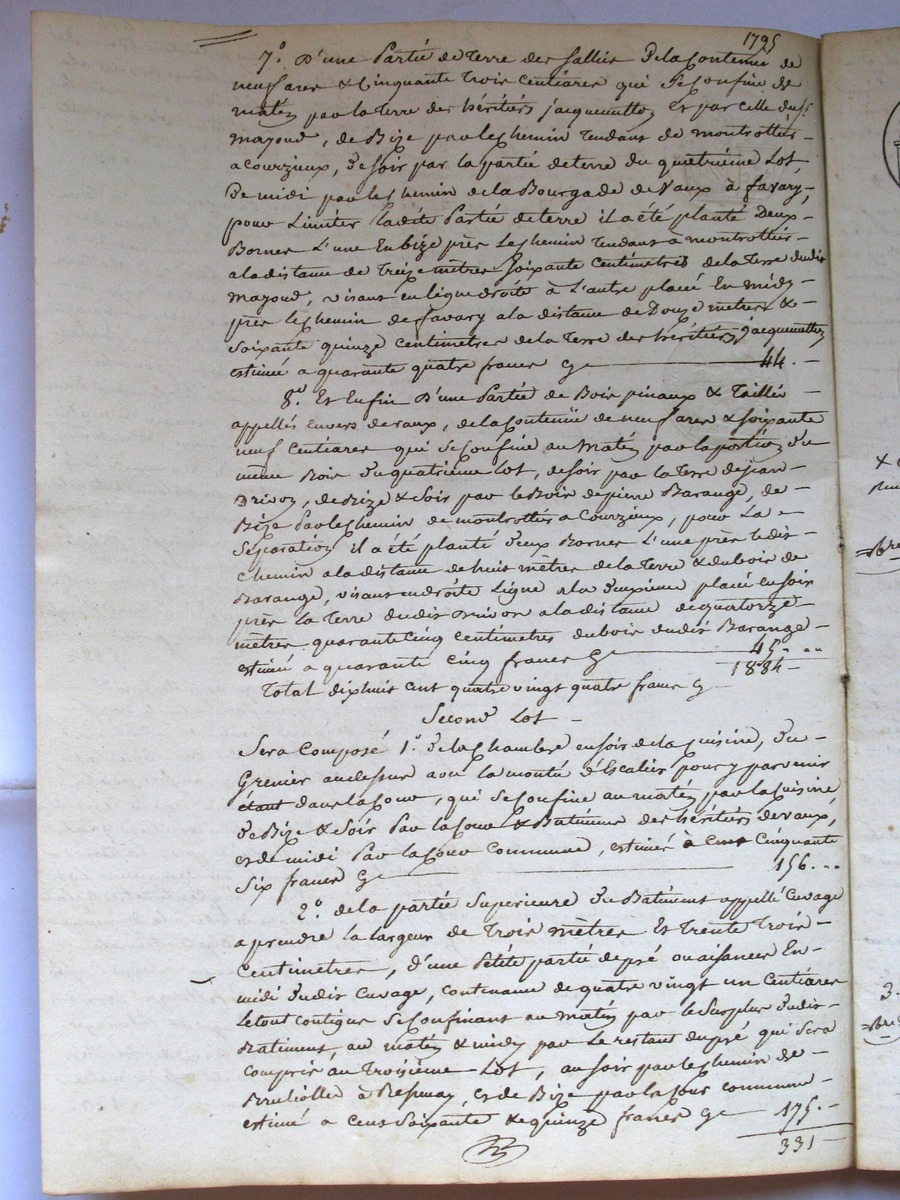 1795
7.° D'une Partie de Terre des Sallies De la Contenue de
neuf ares & Cinquante Trois Centiares qui Se Confine de
matin par la Terre des héritiers jacquemetton Et par celle dud.t
mazoud, de Bize par le chemin Tendant de montrottier
a Courzieux, de Soir par la partie de terre du quatrième Lot,
De midi par le chemin de la Bourgade de Vaux à favary,
pour Limiter ladite Partie de terre il a été planté Deux
Bornes L'une En bize près Le chemin Tendant à montrottier
a la distance de Treize mètres Soixante Centimètres de la Terre dudit
mazoud, visant en ligne droite à L'autre placé En midy
près le chemin de favary a la distance de Douze mètres &
Soixante quinze Centimètres de la Terre des héritiers Jacquemetton
estimé a quarante quatre francs Cy 44. -
8.° Et Enfin D'une Partie de Bois pinaux & Taillis
appellés Envers de vaux, de la Contenüe de neuf ares & Soixante
neuf Centiares qui Se Confine au Matin par la portion du
même Bois du quatrième Lot, de Soir par la Terre de jean
Drivon, de Bize & Soir par le Bois de pierre Barange, de
Bize Par le chemin de montrottier a Courzieux, pour La
Séparation il a été planté deux Bornes L'une près le dit
chemin a la distance de huit mètres de la Terre & du bois de
Barange, visant en droite Ligne a la deuxième placé en soir
près la Terre dudit Drivon a la distance de quatorze
mètres quarante Cinq Centimètres du bois dudit Barange
estimé a quarante Cinq francs Cy 45 -
Total dix huit cent quatre vingt quatre francs Cy 1884 -
Second Lot -
Sera Composé 1.° De la Chambre en soir de la Cuisine, du
Grenier au dessus avec la monté d'Escalier pour y parvenir
étant dans la Cour, qui Se Confine au matin par la Cuisine
de Bize & Soir Par la Cour & Bâtiment des héritiers devaux,
et de midi Par la Cour Commune, estimés à Cent Cinquante
Six francs Cy 156 ..
2.° de la partie Supérieure du Bâtiment appellé Cuvage
a prendre la Largeur de Trois mètres Et Trente Trois
Centimètres, d'une Petite partie de pré ou aisances En
midi dudit Cuvage, Contenance de quatre vingt un Centiares
Le tout contigue Se Confinant au Matin par le Surplus dudit
Bâtiment, au matin & midy par Le restant du pré qui Sera
Compris au Troisième Lot, au Soir par le chemin de
à, et de Bize par la Cour commune
estimé a Cent Soixante & quinze francs Cy 175. -
331 -